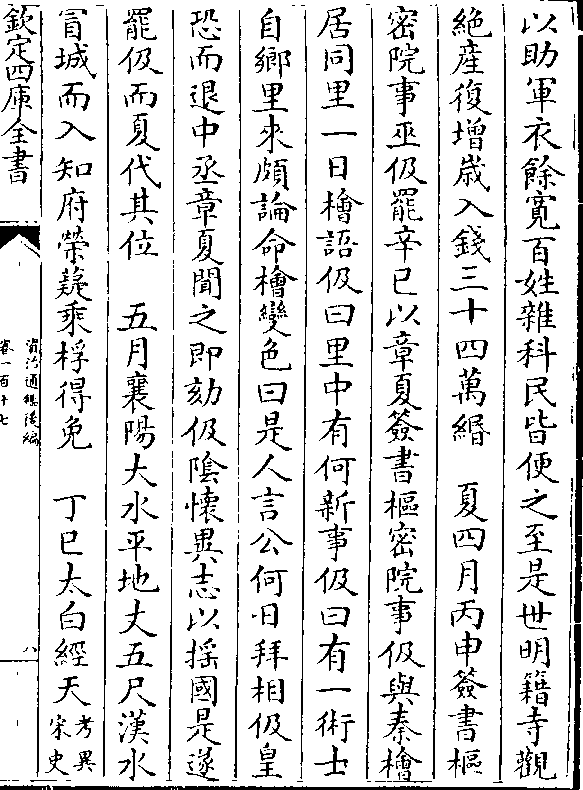 以助軍衣餘寛百姓雜科民皆便之至是世明籍寺觀
絶産復增歳入錢三十四萬緡　夏四月丙申簽書樞
密院事巫伋罷辛巳以章夏簽書樞密院事伋與秦檜
居同里一日檜語伋曰里中有何新事伋曰有一術士
自鄉里來頗論命檜變色曰是人言公何日拜相伋皇
恐而退中丞章夏聞之即劾伋陰懷異志以揺國是遂
罷伋而夏代其位　五月襄陽大水平地丈五尺漢水
冐城而入知府榮薿乘桴得免　丁巳太白經天考異宋史
欽定四庫全書
資治通鑑後編
卷一百十七
八